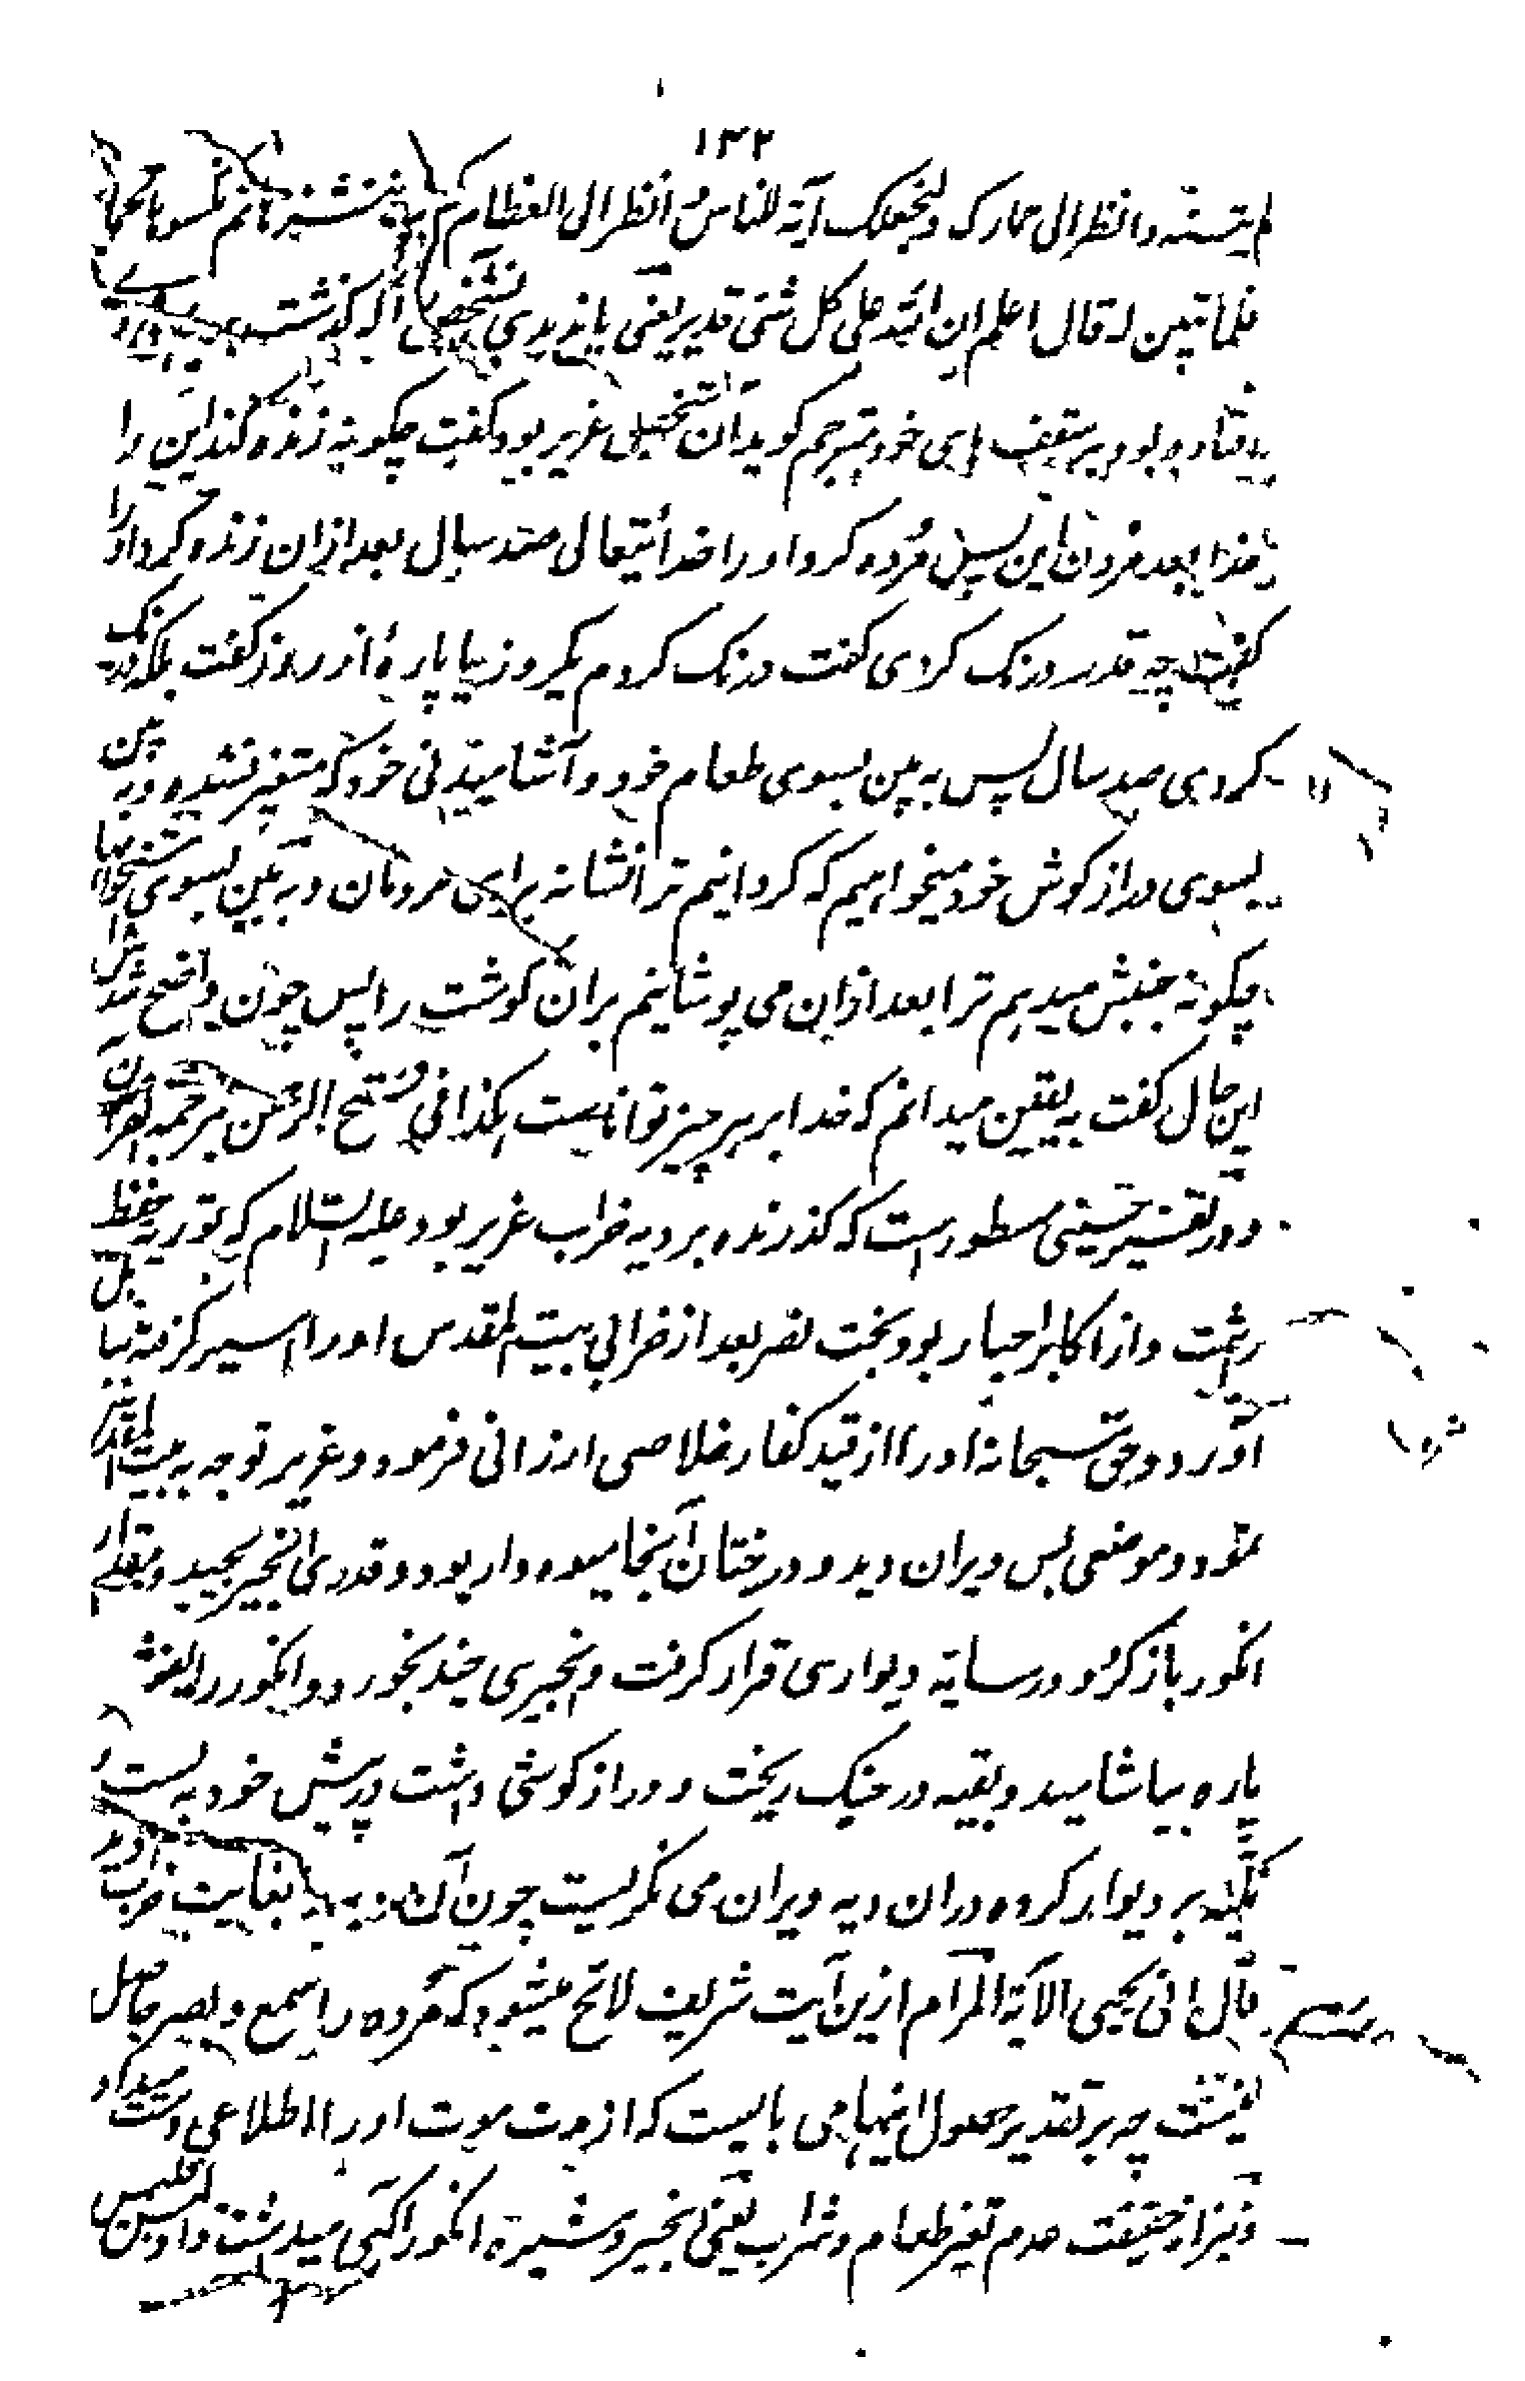 ۱۳۲
لم یتسنه وانظر الی حمارک ولنجعلک آیة للناس وانظر الی العظام کیف ننشزها ثم نکسوها لحما
فلما تبین له قال اعلم ان الله علی کل شئ قدیر یعنی یا ندیدی شخصی که گذشت
افتاده بود بر سقف های خود مترجم گوید آن شخص عزیر بود گفت چگونه زنده کند این را
خدا بعد مردن این پس مرده کرد او را خدائیتعالی صد سال بعد ازان زنده کرد او را
گفت چه قدر درنک کردی گفت درنک کردم یکروز یا پارهٔ از روز گفت بلکه درنک
کردی صد سال پس به بین بسوی طعام خود و آشامیدنی خود که متغیر نشده و به بین
بسوی درازگوش خود میخواهیم که گردانیم ترا نشانه برای مردمان و به بین بسوی استخوانها
چگونه جنبش میدهیم ترا بعد ازان می پوشانیم بران گوشت را پس چون واضح شد
این حال گفت به یقین میدانم که خدا بر هر چیز تواناست هکذا فی فتح الرحمن بترجمة القرآن
و در تفسیر حسینی مسطور است که گذرنده بر دیه خراب عزیر بود علیه السلام که توریة حفظ
داشت و از اکابر احبار بود بخت نصر بعد از خرابی بیت المقدس او را اسیر گرفته ببابل
آورد و حق سبحانه او را از قید کفار خلاصی ارزانی فرمود و عزیر توجه به بیت المقدس
نمود و موضعی بس ویران دید و درختان آنجا میوه دار بود و قدری انجیر بچید و مقداری
انگور باز کرد و در سایه دیواری قرار گرفت و انجیری چند بخورد و انگور را بفشرد
پاره بیاشامید و بقیه در خیک ریخت و درازگوشی داشت در پیش خود به بست و
تکیه بر دیوار کرده دران دیه ویران می نگریست چون آن دیه بغایت خراب دید
قال انی یحیی الآیة المرام ازین آیت شریف لائح میشود که مرده را سمع و بصر حاصل
نیست چه بر تقدیر حصول اینها می بایست که از مدت موت او را اطلاعی دست میداد
و نیز از حقیقت عدم تغیر طعام و شراب یعنی انجیر و شیره انگور آگهی میداشت